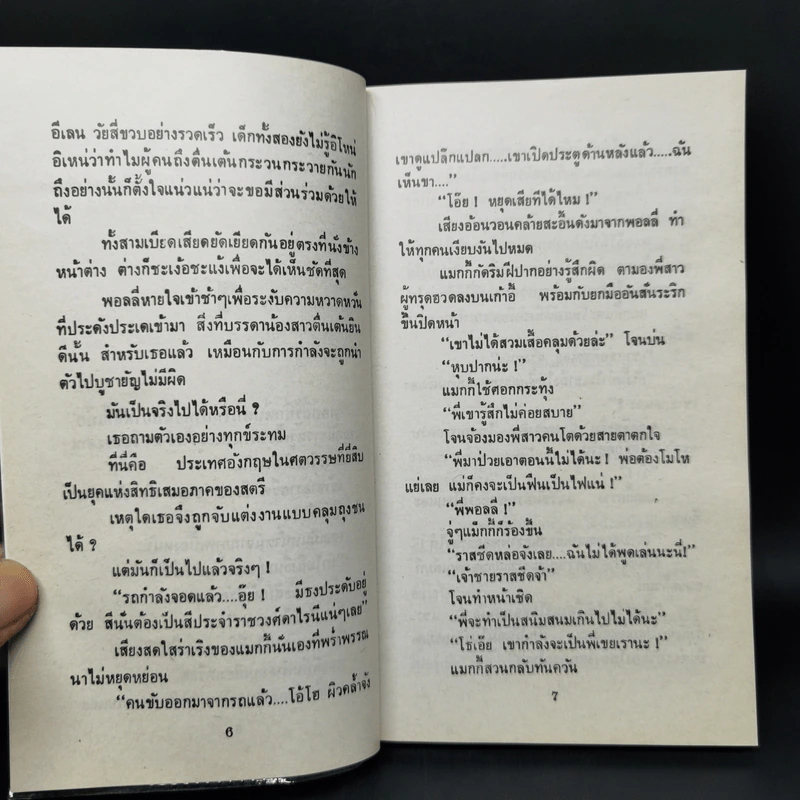 อีเลน วัยสี่ขวบอย่างรวดเร็ว เด็กทั้งสองยังไม่รู้อิโหน่
อิเหน่ว่าทำไมผู้คนถึงตื่นเต้นกระวนกระวายกันนัก
ถึงอย่างนั้นก็ตั้งใจแน่วแน่ว่าจะขอมีส่วนร่วมด้วยให้
ได้
ทั้งสามเบียดเสียดยัดเยียดกันอยู่ตรงที่นั่งข้าง
หน้าต่าง ต่างก็ชะเง้อชะแง้เพื่อจะได้เห็นชัดที่สุด
พอลลี่หายใจเข้าช้าๆเพื่อระงับความหวาดหวั่น
ที่ประดังประเดเข้ามา สิ่งที่บรรดาน้องสาวตื่นเต้นยิน
ดีนั้น สำหรับเธอแล้ว เหมือนกับการกำลังจะถูกนำ
ตัวไปบูชายัญไม่มีผิด
มันเป็นจริงไปได้หรือนี่ ?
เธอถามตัวเองอย่างทุกข์ระทม
ที่นี่คือ ประเทศอังกฤษในศตวรรษที่ยี่สิบ
เป็นยุคแห่งสิทธิเสมอภาคของสตรี
เหตุใดเธอจึงถูกจับแต่งงานแบบคลุมถุงชน
ได้ ?
แต่มันก็เป็นไปแล้วจริงๆ !
“รถกำลังจอดแล้ว....อุ๊ย ! มีธงประดับอยู่
ด้วย สีนั่นต้องเป็นสีประจำราชวงศ์ดาไรนีแน่ๆเลย”
เสียงสดใสร่าเริงของแมกกี้นั่นเองที่พร่ำพรรณ
นาไม่หยุดหย่อน
“คนขับออกมาจากรถแล้ว....โอ้โฮ ผิวคล้ำจัง
6
เขาดูแปล๊กแปลก.....เขาเปิดประตูด้านหลังแล้ว.....ฉัน
เห็นขา....”
“โอ๊ย ! หยุดเสียทีได้ไหม !”
เสียงอ้อนวอนคล้ายสะอื้นดังมาจากพอลลี่ ทำ
ให้ทุกคนเงียบงันไปหมด
แมกกี้กัดริมฝีปากอย่างรู้สึกผิด ตามองพี่สาว
ผู้ทรุดฮวดลงบนเก้าอี้ พร้อมกับยกมืออันสั่นระริก
ขึ้นปิดหน้า
“เขาไม่ได้สวมเสื้อคลุมด้วยล่ะ” โจนบ่น
“หุบปากน่ะ !”
แมกกี้ใช้ศอกกระทุ้ง
“พี่เขารู้สึกไม่ค่อยสบาย”
โจนจ้องมองพี่สาวคนโตด้วยสายตาตกใจ
“พี่มาป่วยเอาตอนนี้ไม่ได้นะ ! พ่อต้องโมโห
แย่เลย แม่ก็คงจะเป็นฟืนเป็นไฟแน่ !”
“พี่พอลลี่ !”
จู่ๆแม็กกี้ก็ร้องขึ้น
“ราสชีดหล่อจังเลย....ฉันไม่ได้พูดเล่นนะนี่!”
“เจ้าชายราสชีดจ้า”
โจนทำหน้าเชิด
“พี่จะทำเป็นสนิมสนมเกินไปไม่ได้นะ”
“โธ่เอ๊ย เขากำลังจะเป็นพี่เขยเรานะ !”
แมกกี้สวนกลับทันควัน
7